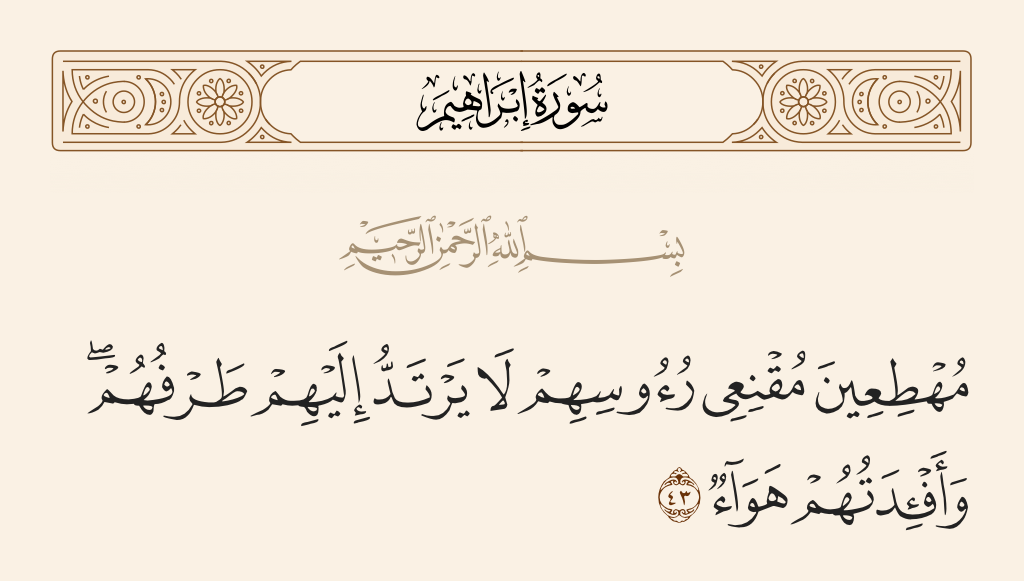 سُورَةُ إِبْرَاهِيمَ
بِسْمِ ٱللَّهِ ٱلرَّحْمَٰنِ ٱلرَّحِيمِ
مُهْطِعِينَ مُقْنِعِى رُءُوسِهِمْ لَا يَرْتَدُّ إِلَيْهِمْ طَرْفُهُمْ ۖ
وَأَفْـِٔدَتُهُمْ هَوَآءٌ ٤٣